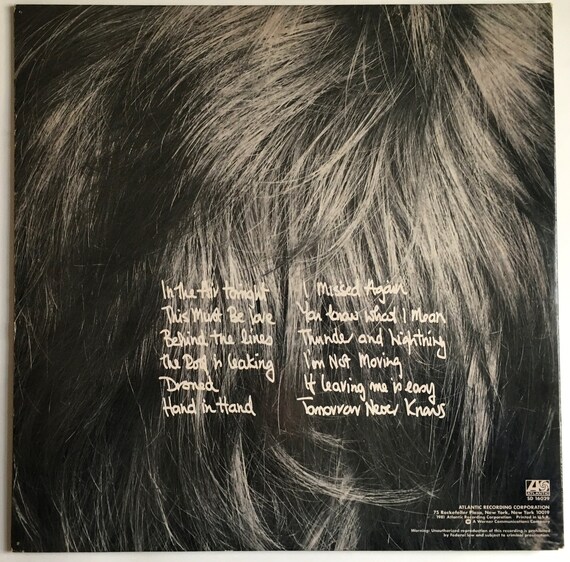 In the Air tonight
This Must Be love
Behind the lines
the Roof is leaking
Droned
Hand in Hand
I Missed Again
You know What I Mean
Thunder and Lightning
I'm Not Moving
If leaving me is easy
Tomorrow Never Knows
ATLANTIC
SD 16029
ATLANTIC RECORDING CORPORATION
75 Rockefeller Plaza, New York, New York 10019
1981 Atlantic Recording Corporation Printed in U.S.A.
A Warner Communications Company
Warning: Unauthorized reproduction of this recording is prohibited
by Federal law and subject to criminal prosecution.